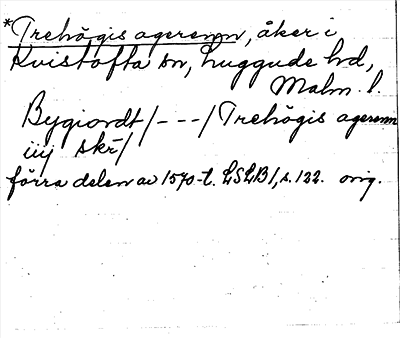 *Trehögis agerenn, åker i
Kvistofta sn, Luggude hd,
Malm. l.
Bygiordt/---/Trehögis agerenn
iiij skr/
förra delen av 1570-t. LSLB1, s. 122. orig.